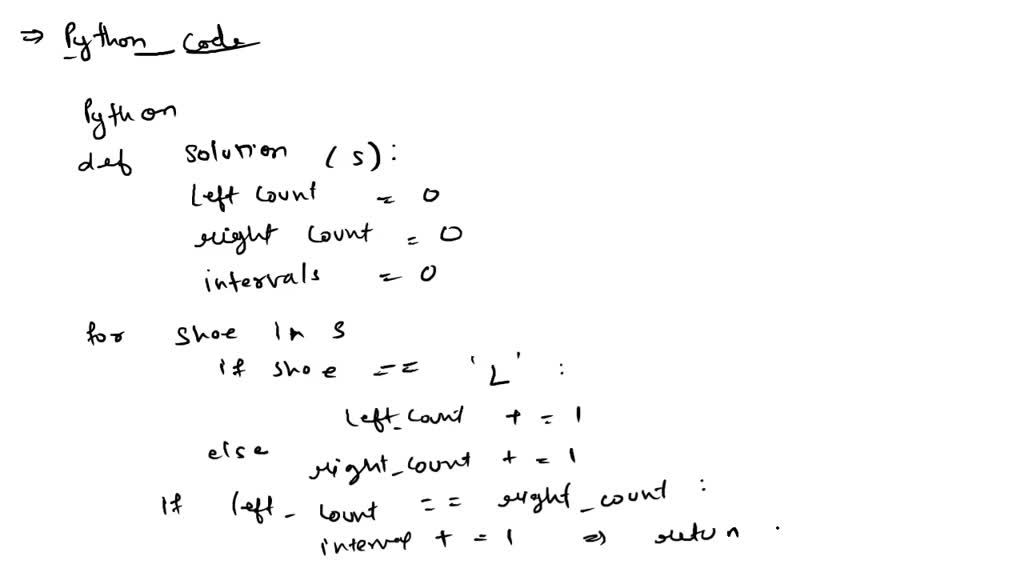 ⇒ Python code
Python
def solution (s):
Left count = 0
right count = 0
intervals = 0
for shoe in s
if shoe == 'L' :
left_count + = 1
else
right_count + = 1
if left_ count == right_count :
interval + = 1 ⇒ return .